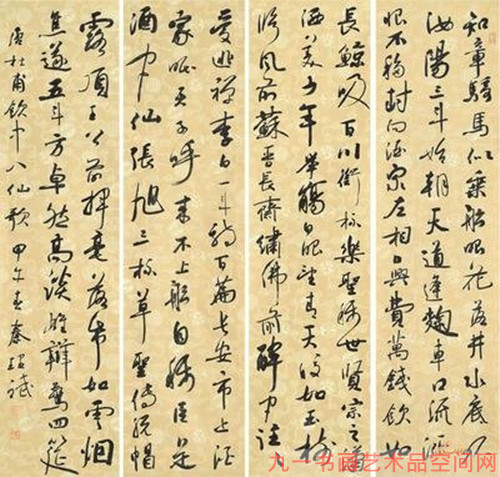 知章騎馬似乘船眼花落井水底眠
汝陽三斗始朝天道逢麴車口流涎
恨不移封向酒泉左相日興費萬錢飲如
長鯨吸百川銜杯樂聖稱世賢宗之瀟
洒美少年舉觴白眼望青天皎如玉樹
臨風前蘇晉長齋繡佛前醉中往々
愛逃禪李白一斗詩百篇長安市上酒
家眠天子呼來不上船自稱臣是
酒中仙張旭三杯草聖傳脫帽
露頂王公前揮毫落紙如雲烟
焦遂五斗方卓然高談雄辯驚四筵
唐杜甫飲中八仙歌 甲午春秦
九一书画艺术品空间网